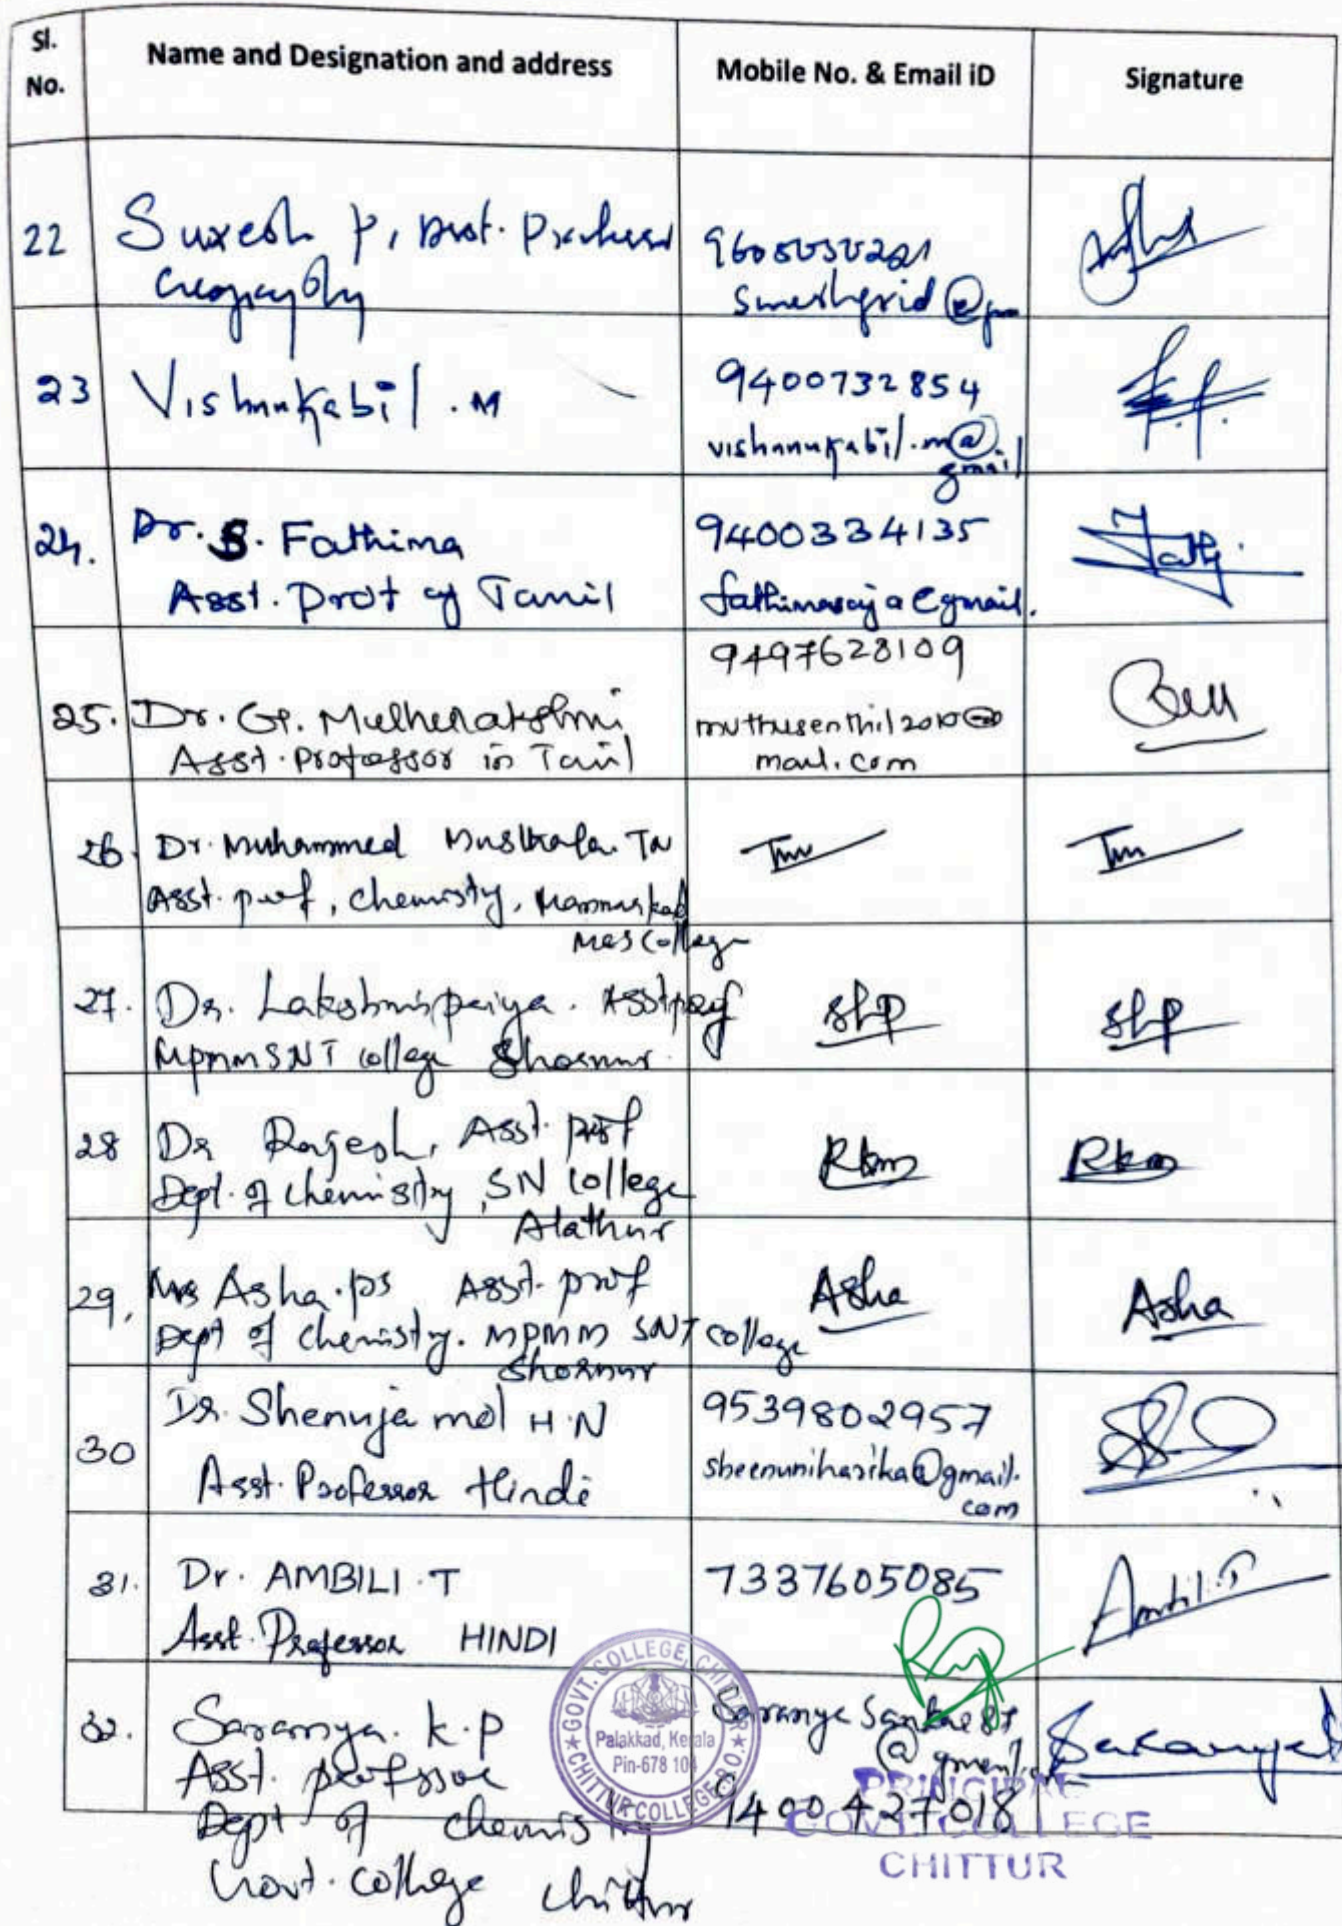 Sl. No.
Name and Designation and address
Mobile No. & Email iD
Signature
22
Suresh P, Asst. Professor
Geography
sureshgrid@gm
23
Vishnukabil . M
9400732854
vishnnukabil.m@
gmail
24.
Dr. S. Fathima
Asst. Prof of Tamil
9400334135
fathimasaja@gmail.
25.
Dr. G. Muthulakshmi
Asst. Professor in Tamil
9497628109
muthusenthil2010@
mail.com
26.
Dr. Muhammed Musthafa TN
Asst. prof, chemisty, Mannarkad
MES College
27.
Dr. Lakshmipriya. Asst prof
MPMMSNT College Shornur
Shp
Shp
28
Dr Rajesh, Asst. prof
Dept. of chemistry, SN College
Alathur
Rkm
Rkm
29,
Mrs Asha.ps Asst. prof
Dept of chemistry. MPMM SNT college
Shornur
Asha
Asha
30
Dr. Shenuja mol H.N
Asst. Professor Hindi
9539802957
sheenuniharika@gmail.
com
31.
Dr. AMBILI . T
Asst. Professor HINDI
7337605085
Ambili.T
32.
Saranya. K.P
Asst. professor
Dept of chemistry
Govt. College Chittur
@gmail
9400427018
Saranya
GOVT. COLLEGE, CHITTUR
Palakkad, Kerala
Pin-678 104
CHITTUR COLLEGE P.O.
PRINCIPAL
GOVT. COLLEGE
CHITTUR